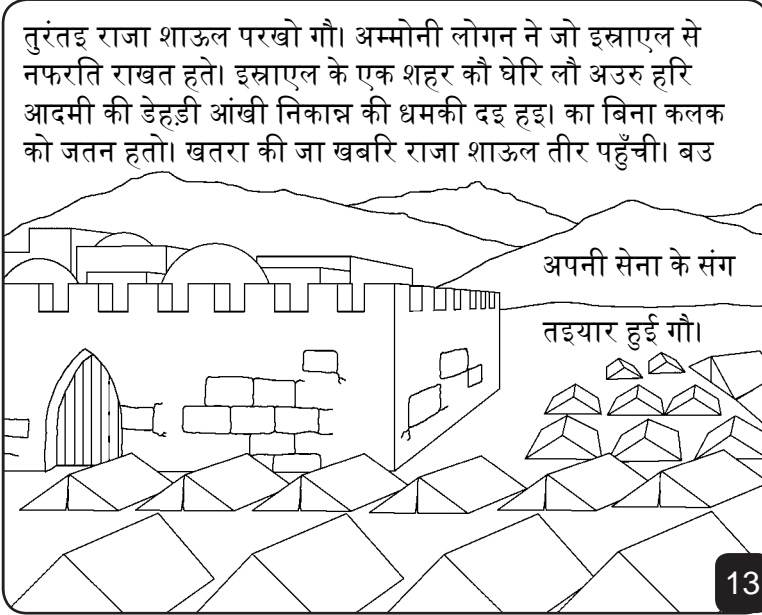 तुरंतइ राजा शाऊल परखो गौ। अम्मोनी लोगन ने जो इस्राएल से
नफरति राखत हते। इस्राएल के एक शहर कौ घेरि लौ अउरु हरि
आदमी की डेहड़ी आंखी निकान्न की धमकी दइ हइ। का बिना कलक
को जतन हतो। खतरा की जा खबरि राजा शाऊल तीर पहुँची। बउ
अपनी सेना के संग
तइयार हुई गौ।
13